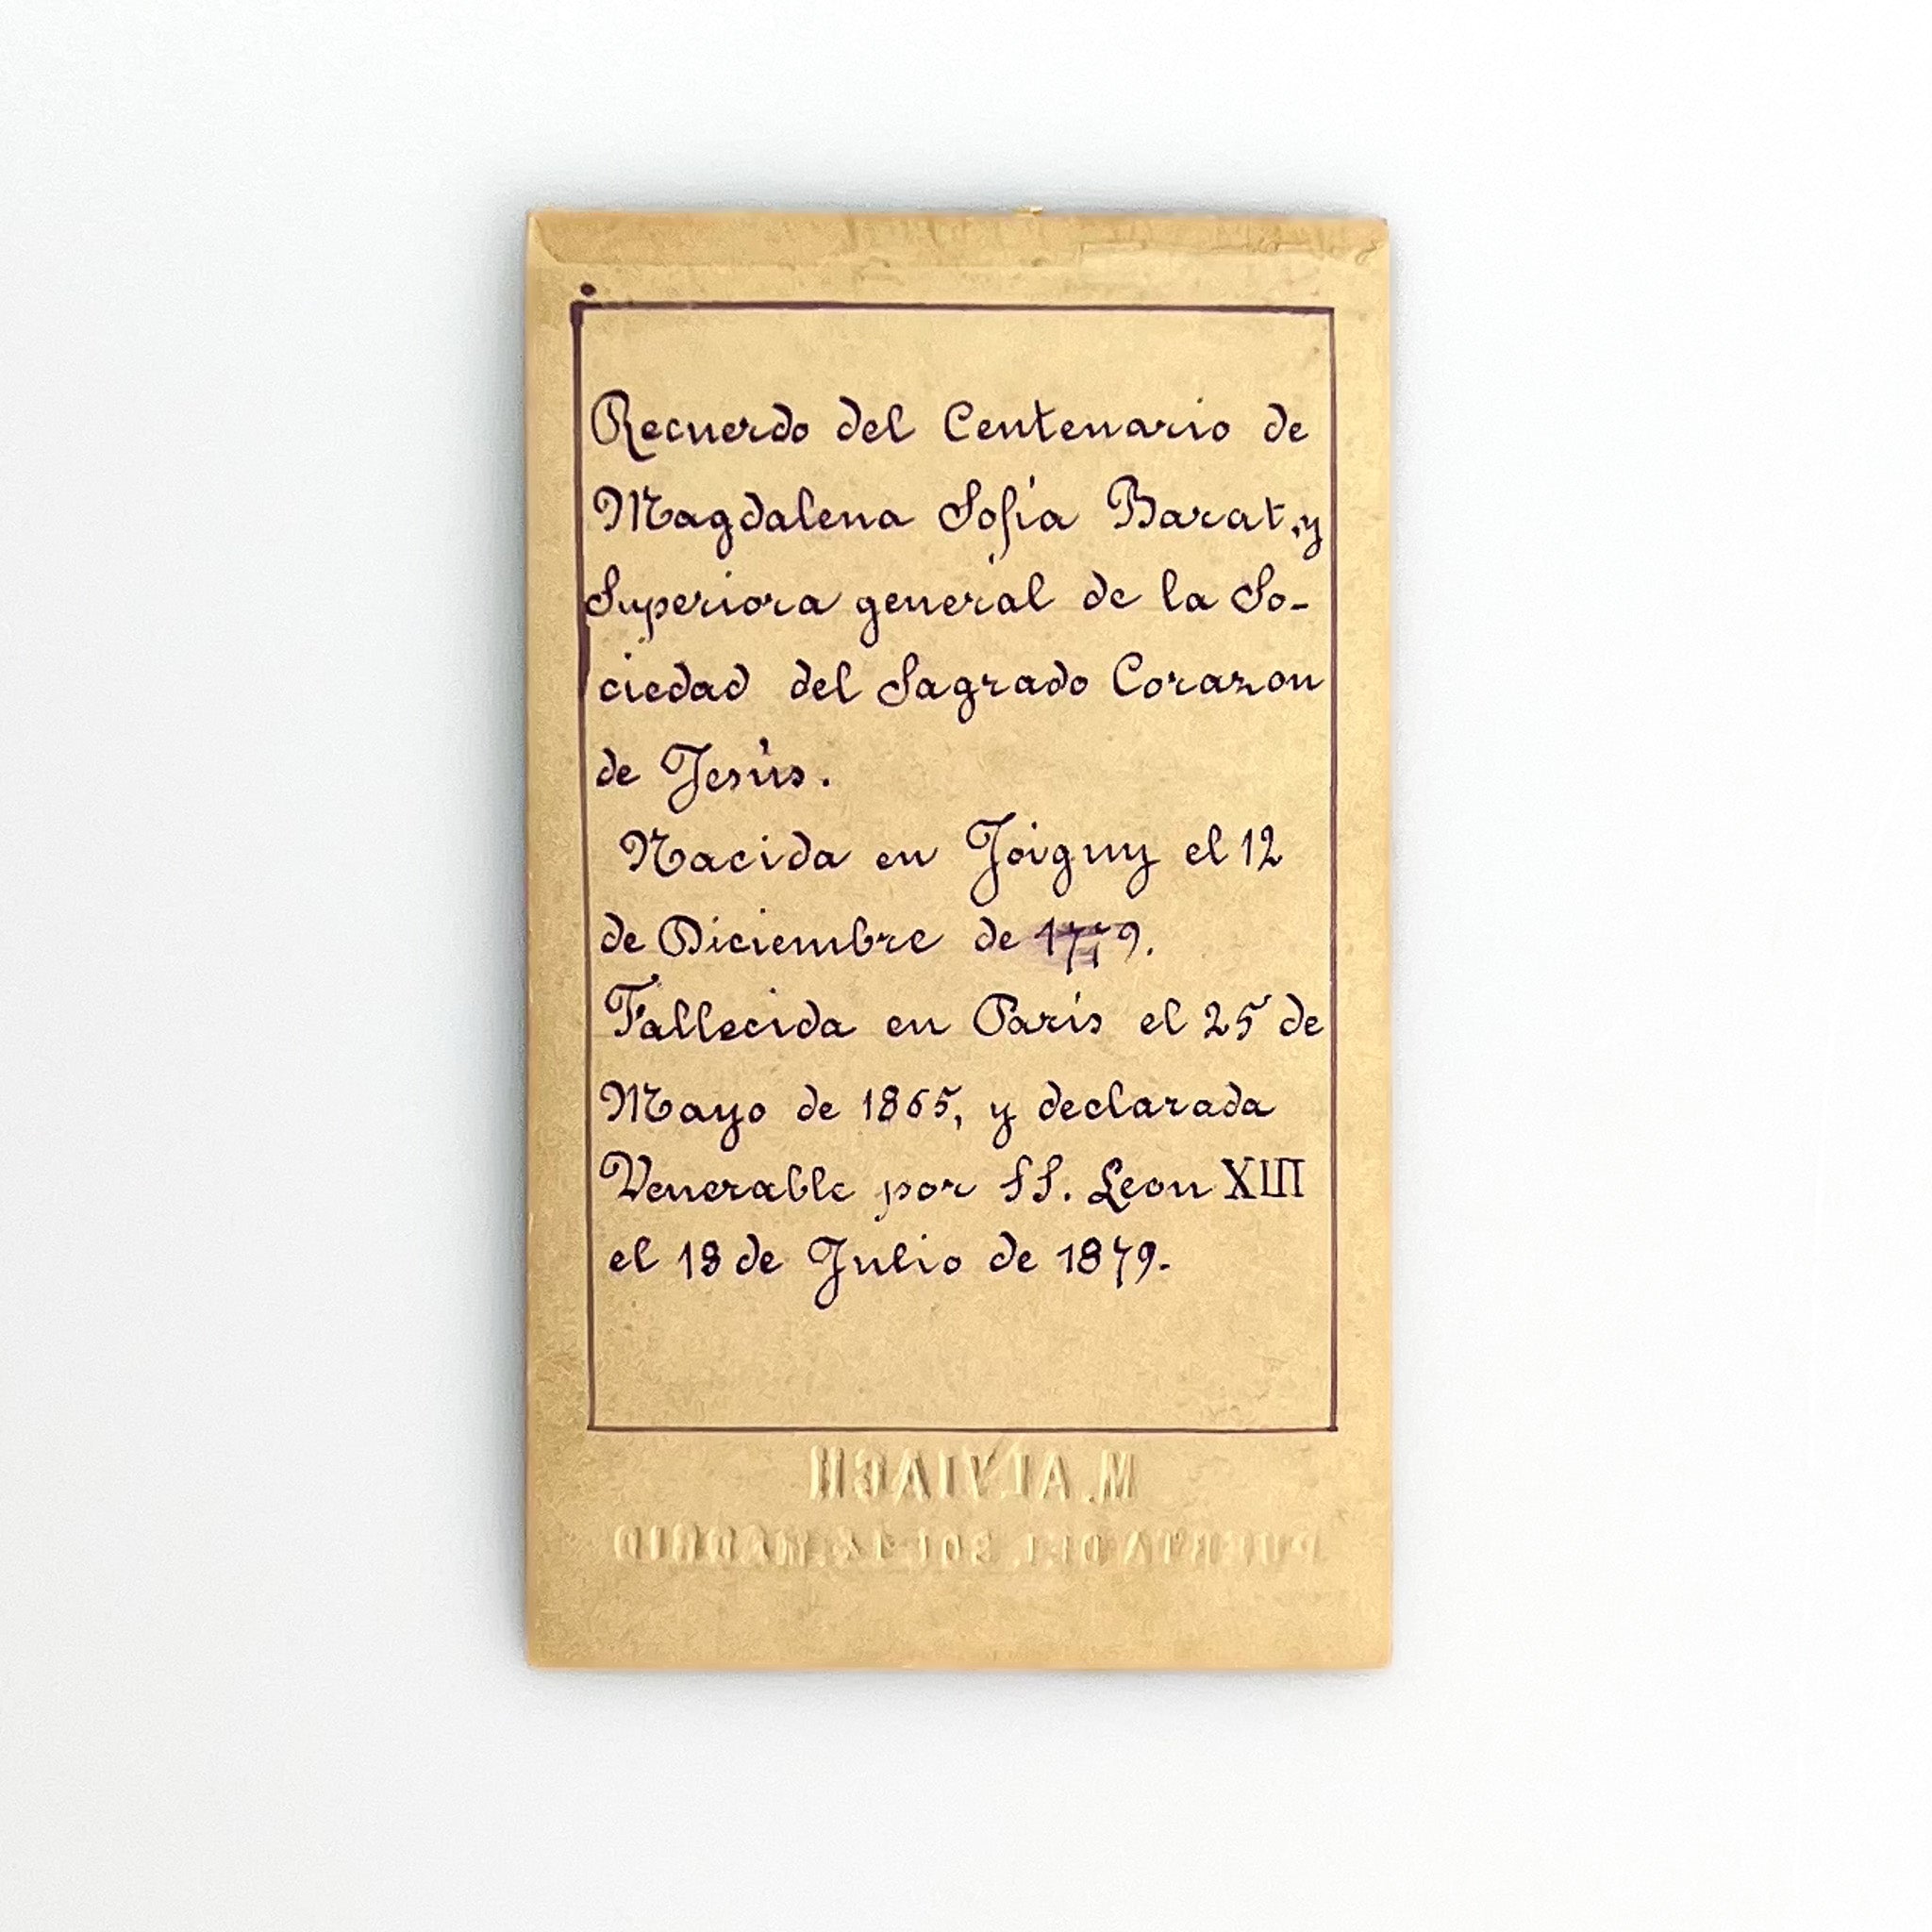 Recuerdo del Centenario de
Magdalena Sofía Barat, y
Superiora general de la So-
ciedad del Sagrado Corazon
de Jesús.
Nacida en Joigny el 12
de Diciembre de 1779.
Fallecida en París el 25 de
Mayo de 1865, y declarada
Venerable por SS. Leon XIII
el 18 de Julio de 1879.
M. ALVIACH
PUERTA DEL SOL 14. MADRID